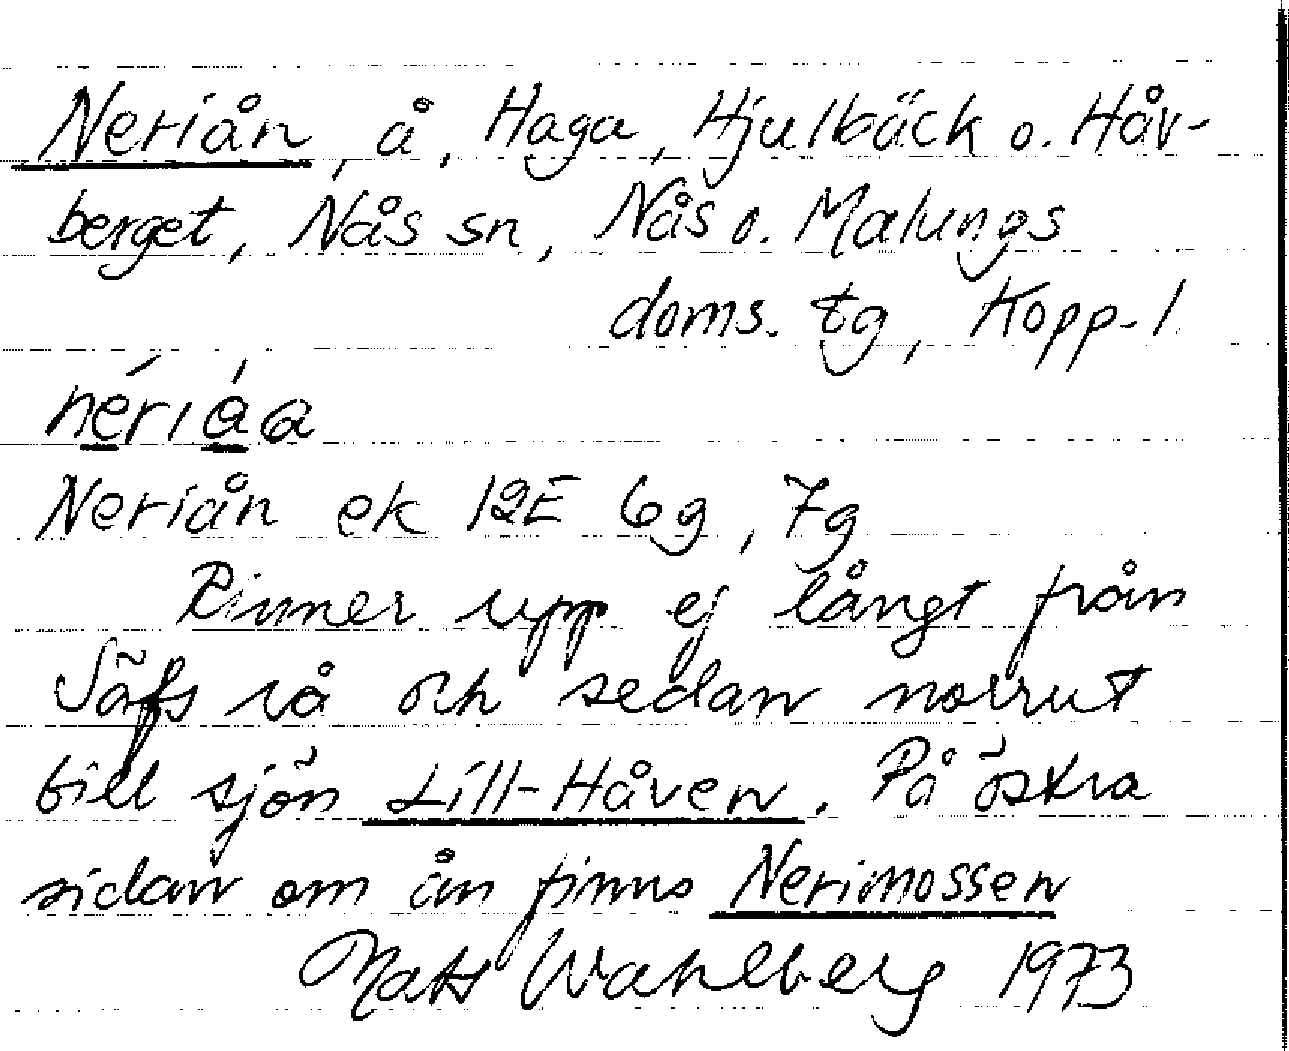 Neriån, å, Haga, Hjulbäck o. Håv-
berget, Nås sn, Nås o. Malungs
doms. tg, Kopp. l.
nériáa
Neriån ek 12E 6g, 7g
Rinner upp ej långt från
Säfs rå och sedan norrut
till sjön Lill-Håven. På östra
sidan om ån finns Nerimossen
Mats Wahlberg 1973